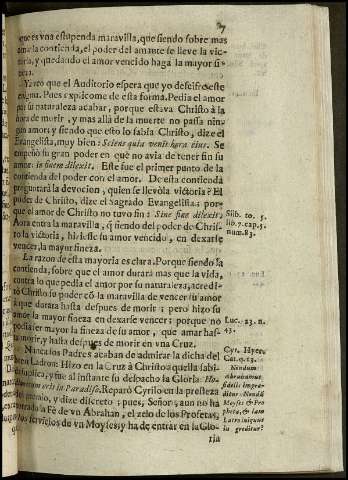 que es vna estupenda maravilla, que siendo sobre mas
amar la contienda, el poder del amante se lleve la vic-
toria, y quedando el amor vencido haga la mayor fi-
neza.
Ya veo que el Auditorio espera que yo descifre este
enigma. Pues explicome de esta forma. Pedia el amor
por su naturaleza acabar, porque estava Christo à la
hora de morir, y mas allà de la muerte no passa nin-
gun amor; y siendo que esto lo sabia Christo, dize el
Evangelista, muy bien: Sciens quia venit hora eius. Se
empeñò su gran poder en què no avia de tener fin su
amor: in finem dilexit. Este fue el primer punto de la
contienda del poder con el amor. De esta contienda
preguntarà la devocion, quien se llevò la victoria? El
poder de Christo, dize el Sagrado Evangelista; por-
que el amor de Christo no tuvo fin: Sine fine dilexit.
Aora entra la maravilla, q̃ siendo del poder de Chris-
to la victoria, hiziesse su amor vencido, en dexarse
vencer, la mayor fineza.
La razon de esta mayoria es clara. Porque siendo la
contienda, sobre que el amor durara mas que la vida,
contra lo que pedia el amor por su naturaleza, acredi-
tò Christo su poder cõ la maravilla de vencer su amor
à que durara hasta despues de morir; pero hizo su
amor la mayor fineza en dexarse vencer; porque no
podia ser mayor la fineza de su amor, que amar has-
ta morir, y hasta despues de morir en vna Cruz.
Nunca los Padres acaban de admirar la dicha del
buen Ladron: Hizo en la Cruz à Christo aquella sabi-
da suplica, y fue al instante su despacho la Gloria: Ho-
die mecum eris in Paradiso. Reparò Cyrilo en la presteza
del premio, y dize discreto: pues, Señor, aun no ha
entrado la Fè de vn Abrahan, el zelo de los Profetas,
los servicios de vn Moyses, y ha de entrar en la Glo-
ria
Slib. to. 5.
lib. 7. cap. 5.
num. 83.
Luc. 23. n.
43.
Cyr. Hyer.
Cat. q. 13.
Nondum
Abrahamus
fidelis ingre-
ditur. Nondũ
Moyses & Pro
pheta, & iam
Latro iniquus
in greditur?